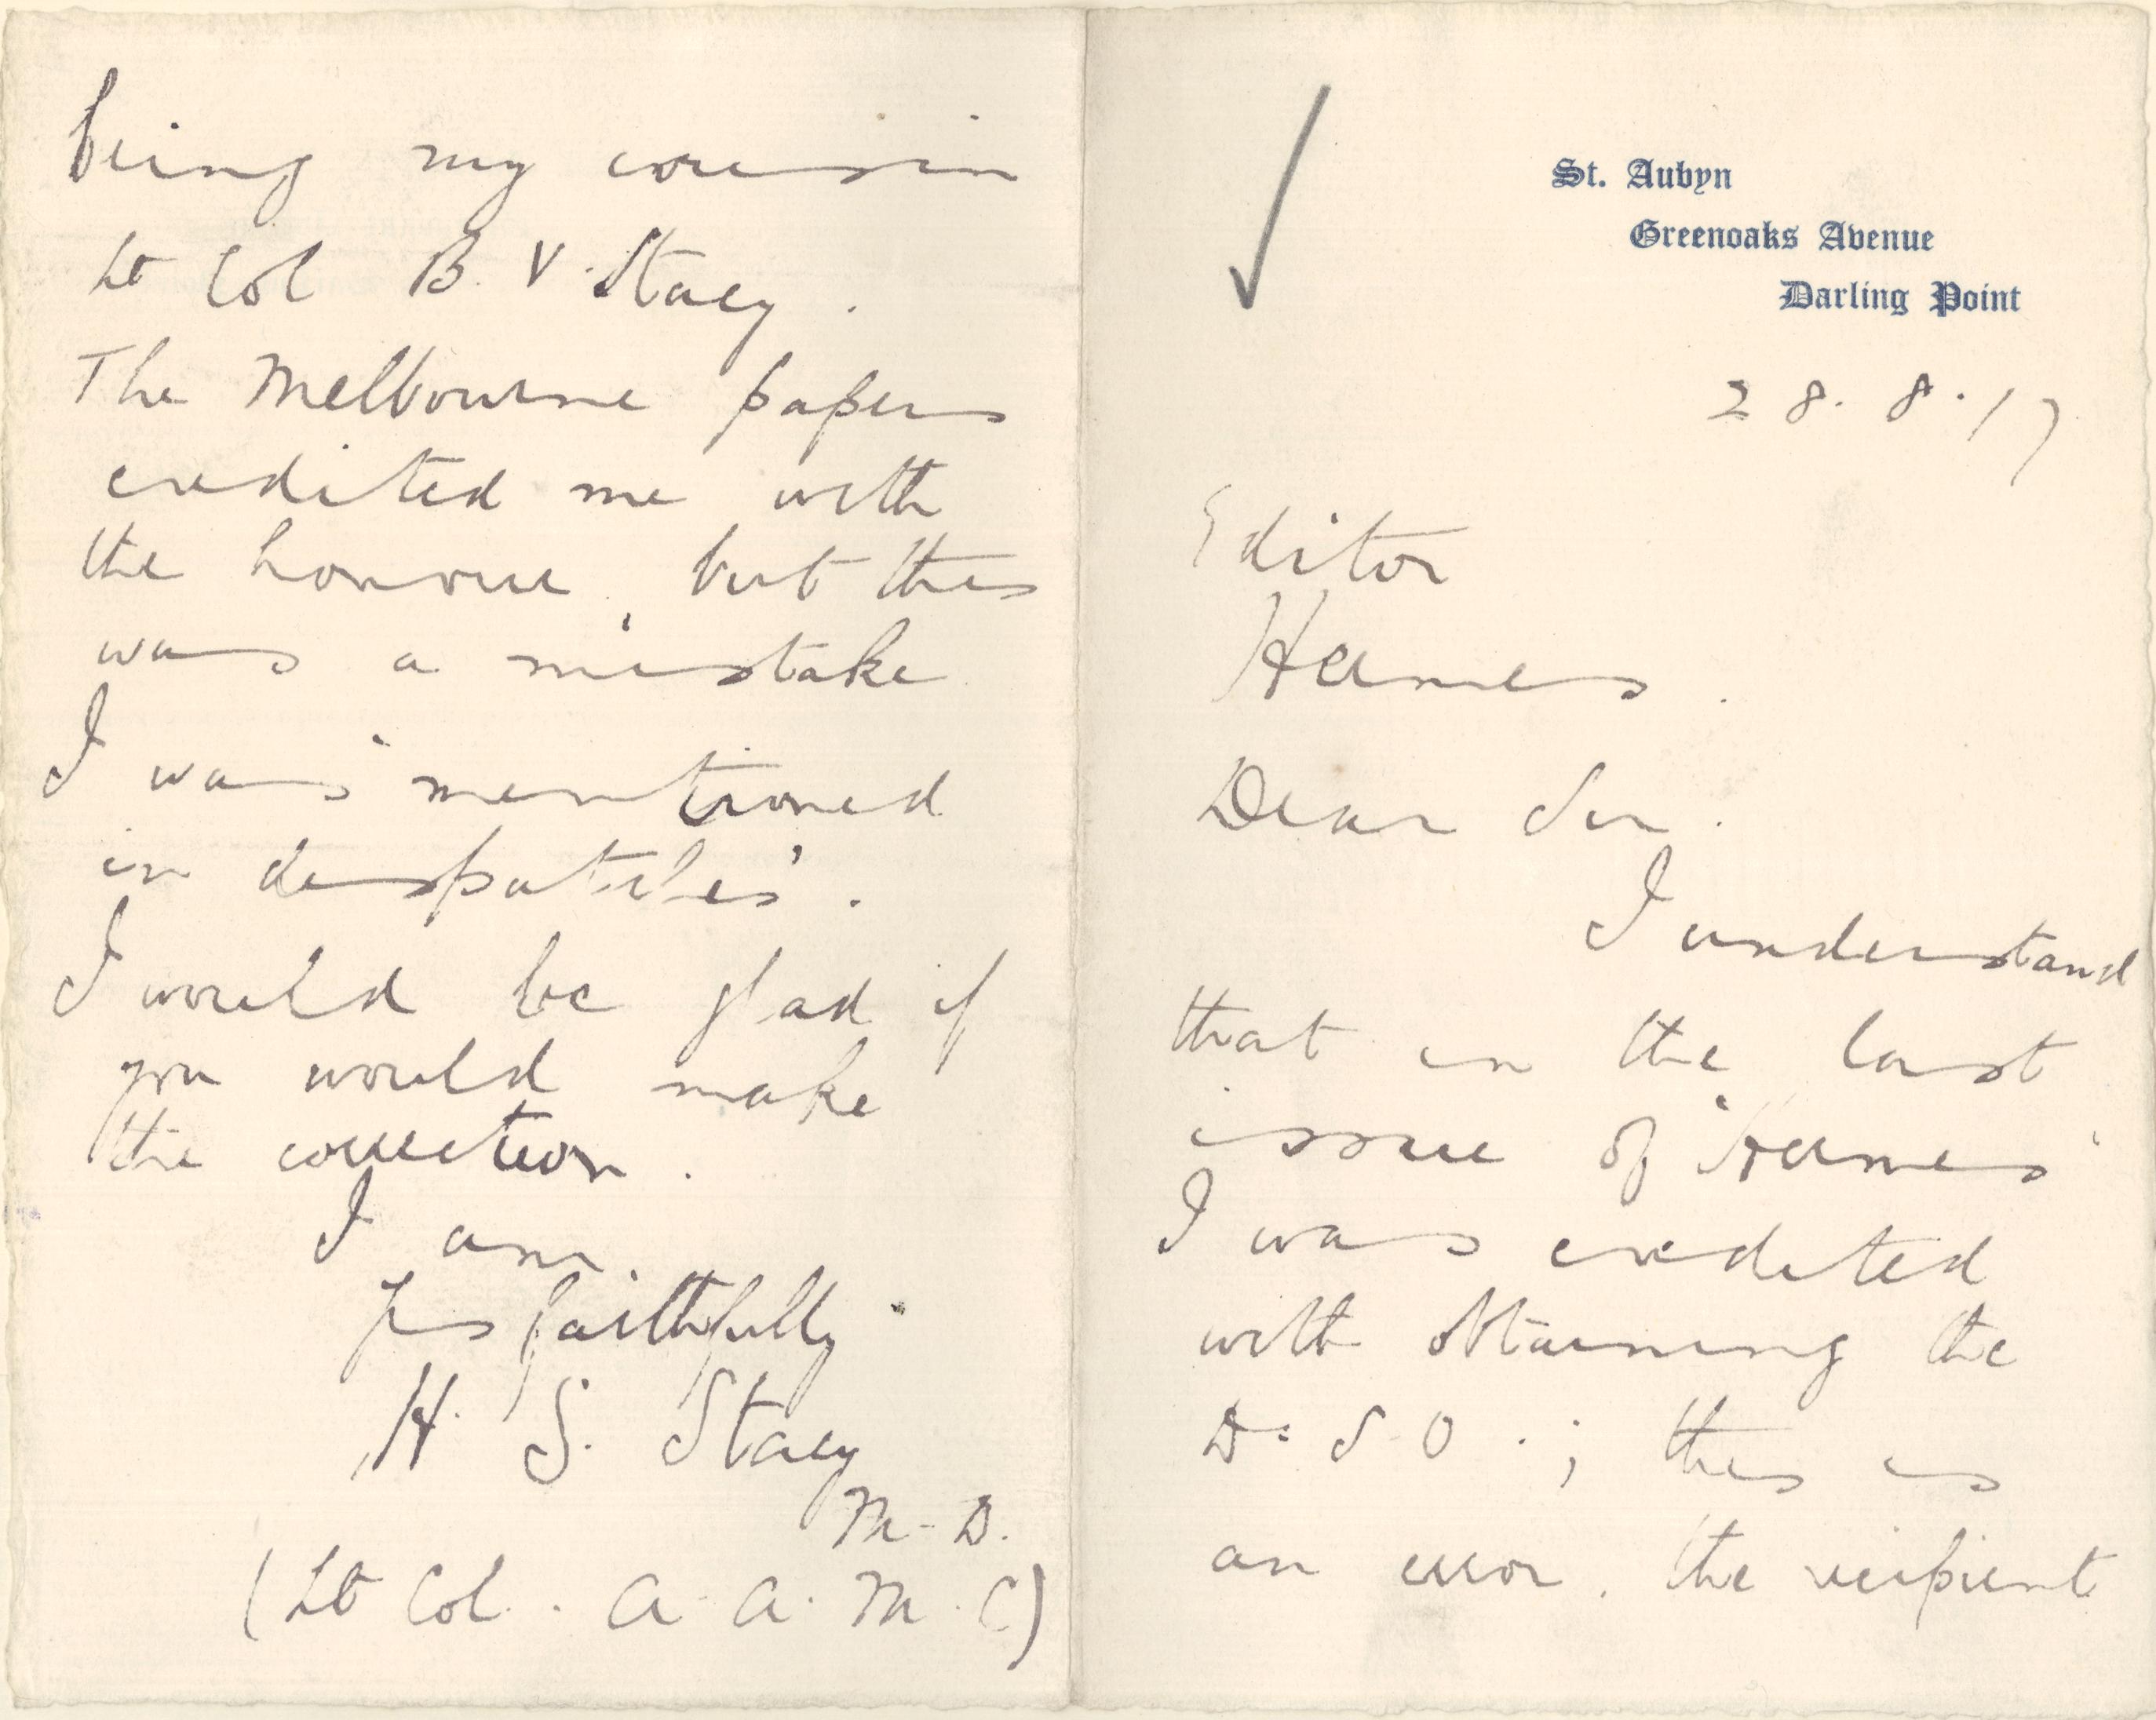 St. Aubyn
Greenoaks Avenue
Darling Point
28.8.17
Editor
Hermes.
Dear Sir.
I understand
that in the last
issue of "Hermes"
I was credited
with obtaining the
D.S.O.; this is
an error. the recipient
being my cousin
Lt Col B.V. Stacy.
The Melbourne papers
credited me with
the honour, but this
was a mistake
I was 'mentioned
in despatches'.
I would be glad if
you would make
the correction.
I am.
Yrs faithfully
H. S. Stacy
M.D.
(Lt Col. A.A.M.C)